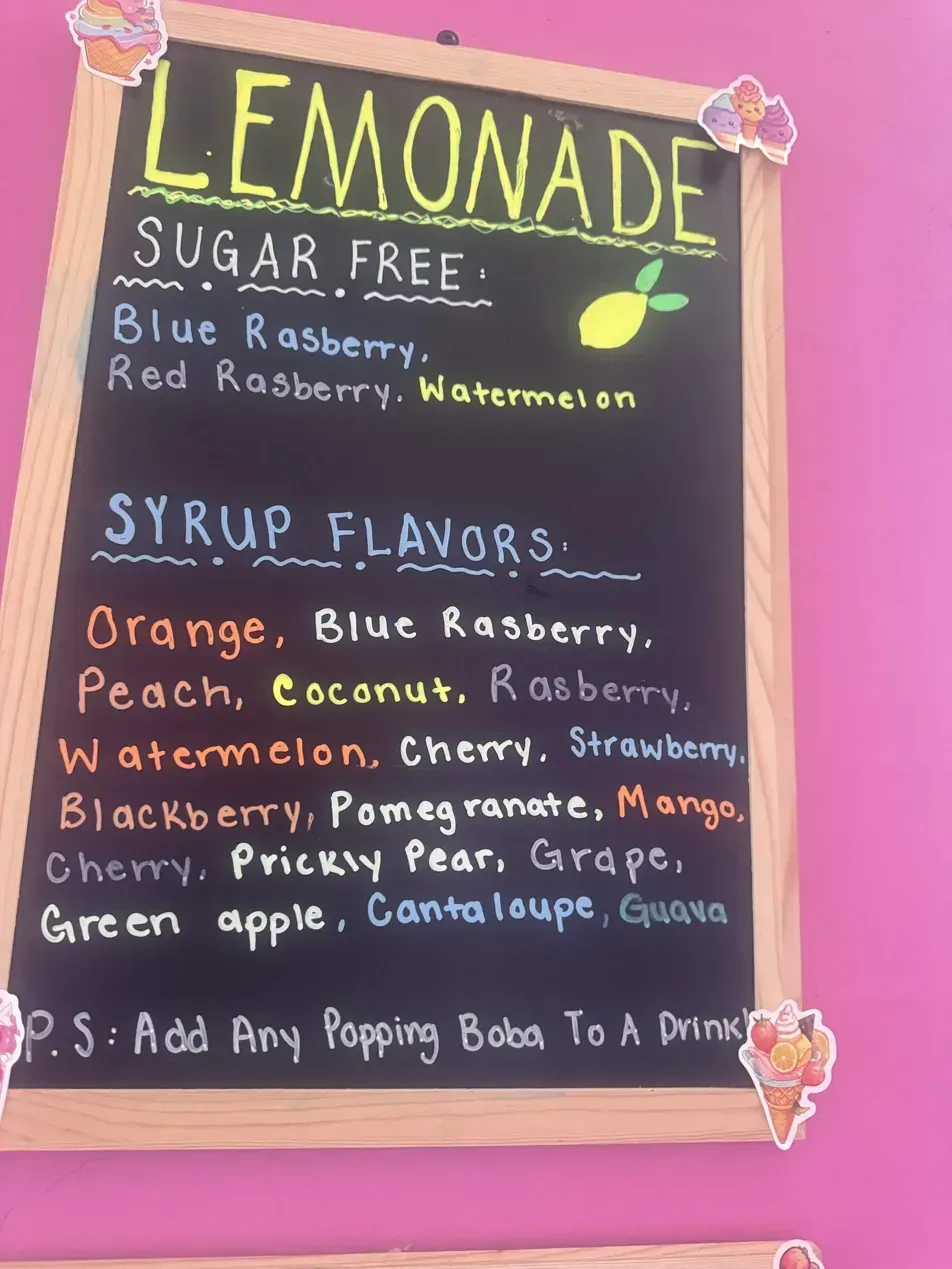 LEMONADE
SUGAR FREE:
Blue Rasberry,
Red Rasberry, Watermelon
SYRUP FLAVORS:
Orange, Blue Rasberry,
Peach, Coconut, Rasberry,
Watermelon, Cherry, Strawberry,
Blackberry, Pomegranate, Mango,
Cherry, Prickly Pear, Grape,
Green apple, Cantaloupe, Guava
P.S: Add Any Popping Boba To A Drink!